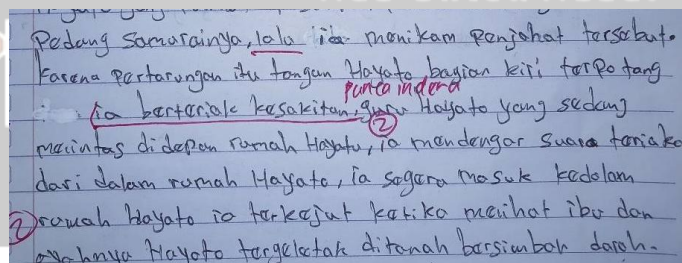 Pedang Samurainya, lalu ia menikam Penjahat tersebut.
Karena Pertarungan itu tangan Hayato bagian kiri terpotang
panca indera
ia berteriak kesakitan, guru Hayato yang sedang
2
melintas didepan rumah Hayato, ia mendengar suara teriaka
dari dalam rumah Hayato, ia segera masuk kedalam
2 rumah Hayato ia terkejut ketika melihat ibu dan
ayahnya Hayato tergeletak ditanah bersimbah darah.